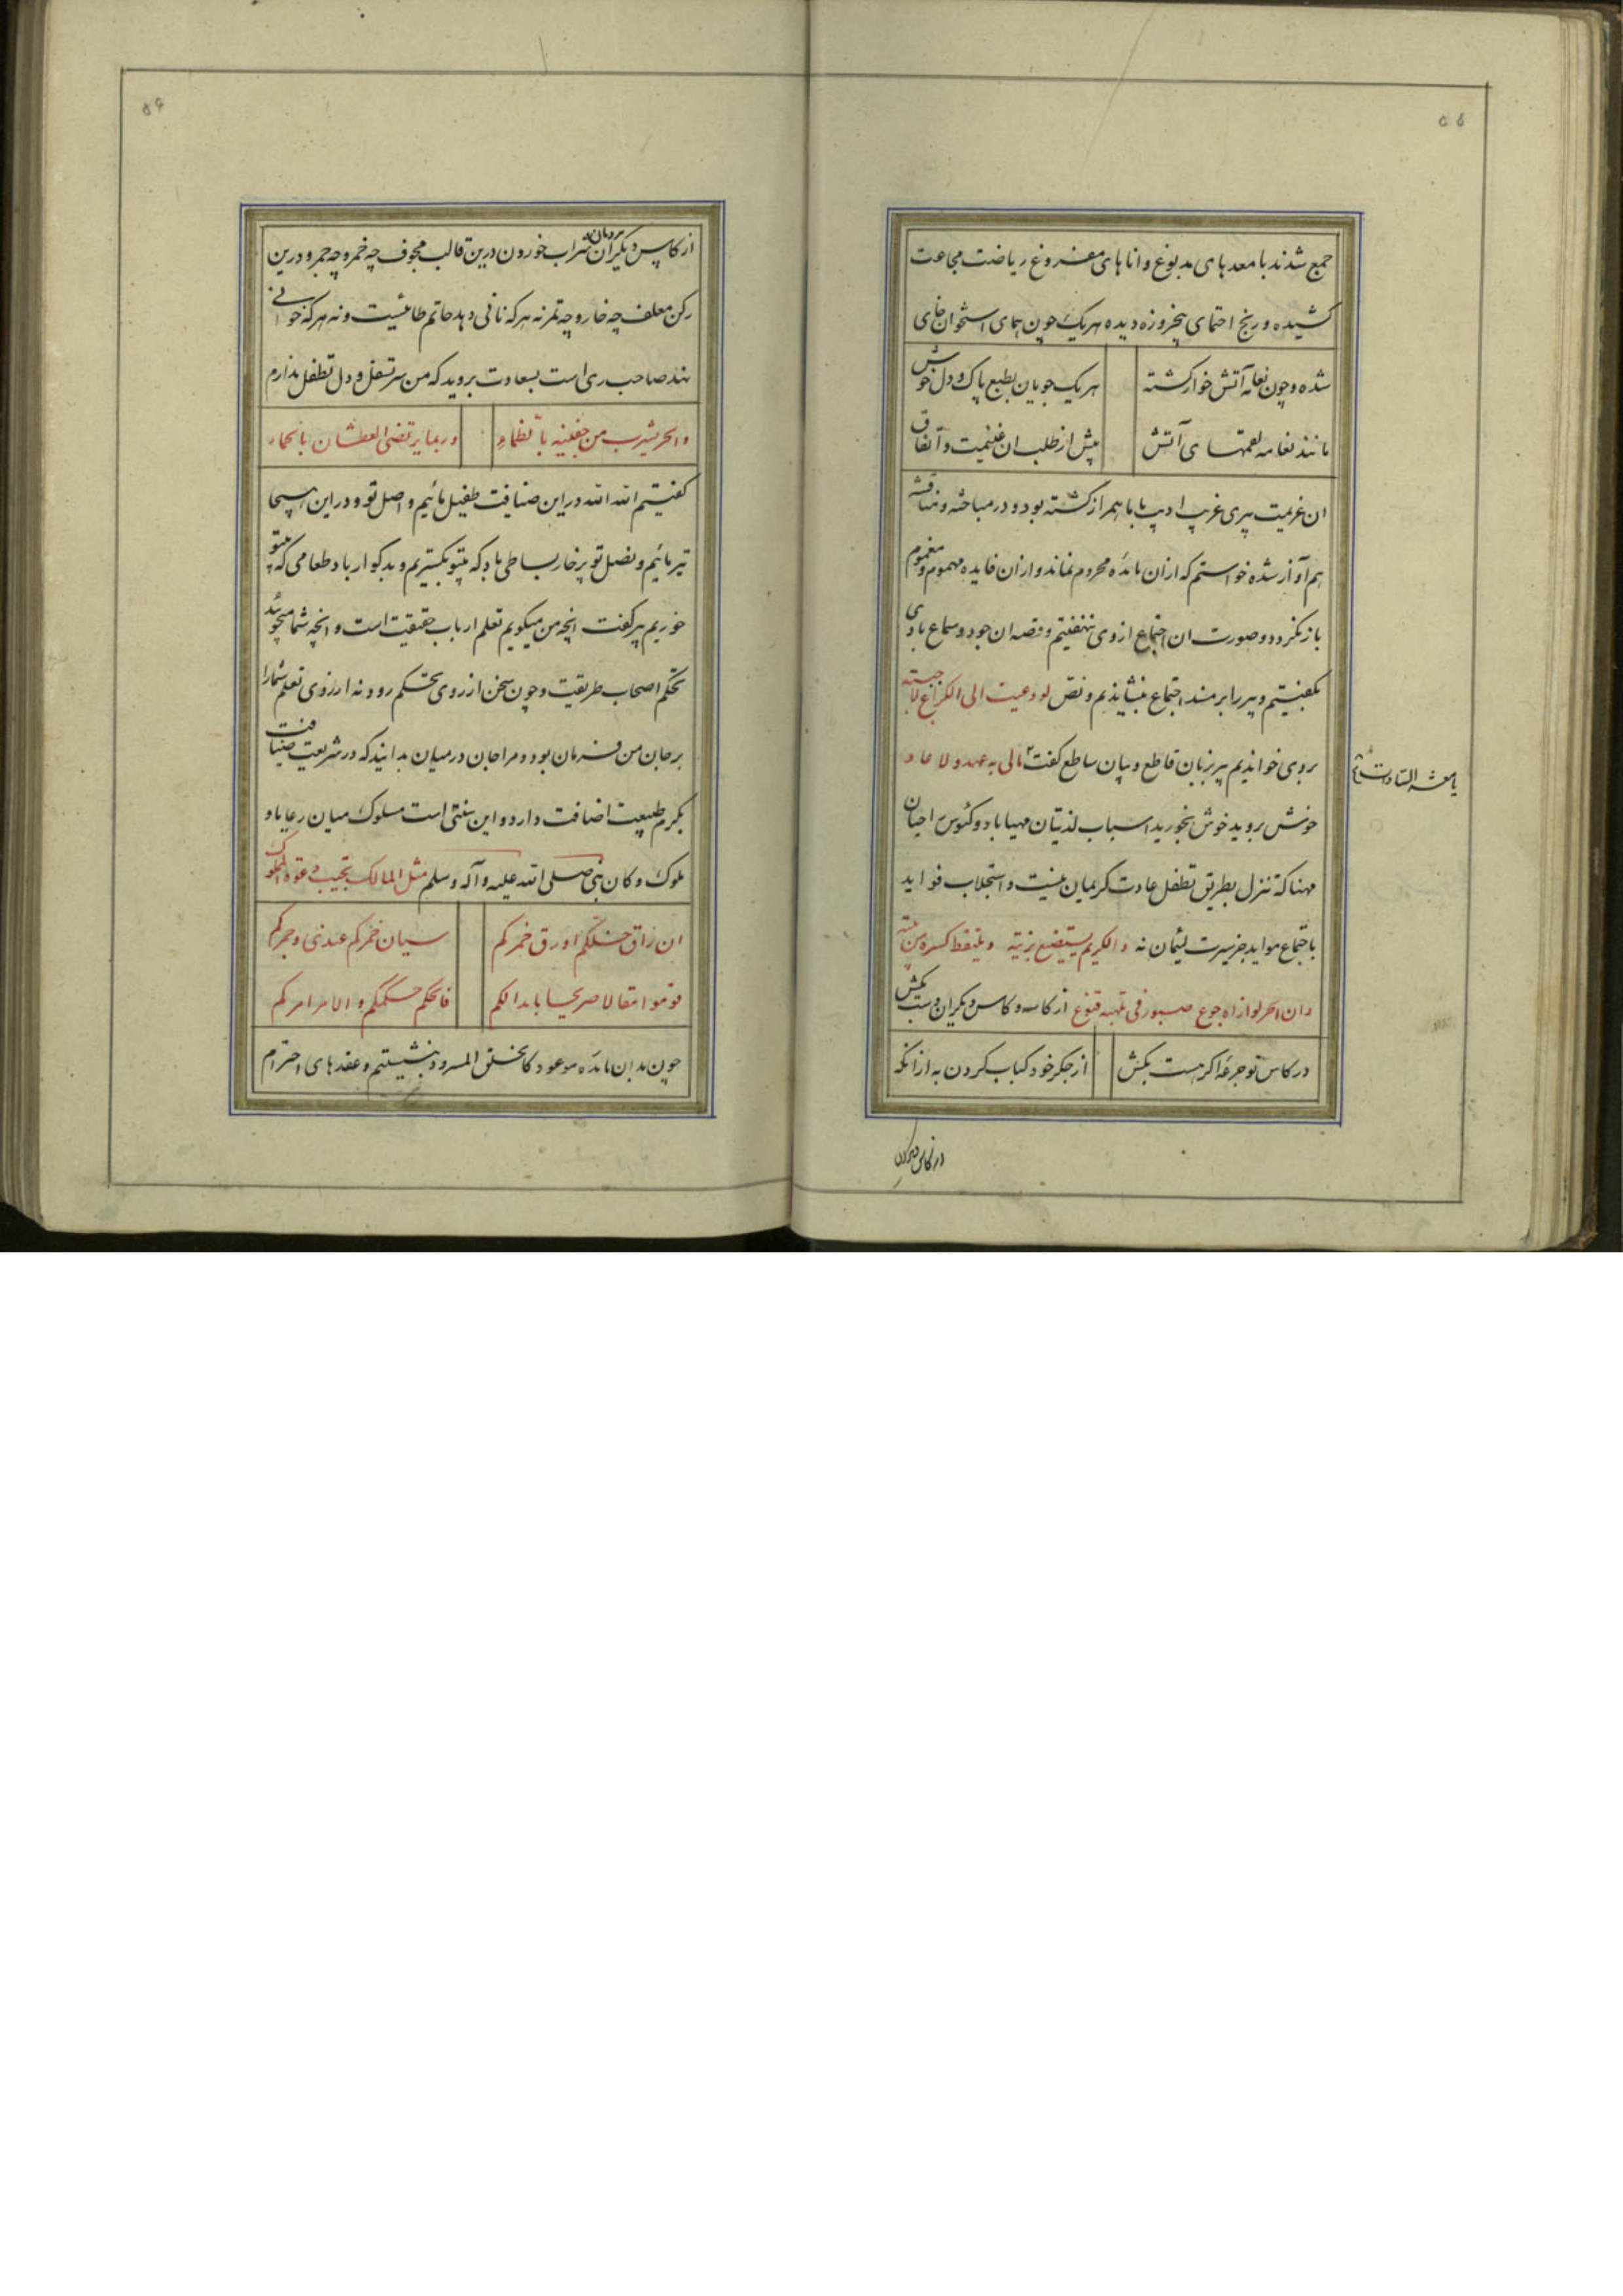 جمع شدند با معدهای مدبوغ و اناهای مفروغ ریاضت مجاعت
کشیده و رنج احتمای پنجروزه دیده هریک چون همای استخوان خای
شده و چون نعامه آتش خوار گشته
هر یک جویان بطبع پاک و دل خوش
مانند نعامه لقمتهای آتش
پیش از طلب ان غنیمت و اتفاق
ان عزیمت پیری غریب ادیب با ما همراز گشته بود و در مباحثه و مناقشه
هم آواز شده خواستم که از آن مائده محروم نماند و از آن فایده مهموم و مغموم
باز نگردد و صورت ان اجتماع از وی ننهفتیم و قصه ان جود و سماع با وی
بگفتیم و پیر را بر مسند اجتماع بنشاندیم و نص لو دعیت الی الکراع لاجبته
بروی خواندیم پیر بزبان قاطع و بیان ساطع گفت مالی به عهد ولا
یا معشر السادت
خوش بروید خوش بخورید اسباب لذتتان مهیا باد و کئوس احیان
مهنا که تنزل بطریق تطفل عادت کریمان نیست و استجلاب فواید
باجتماع مواید جز سیرت لئیمان نه و الکریم لا یستضیع بزیته و یلتقط کسره من بیته
وان الحر لو اراه جوع صبور فی قنوع از کاسه و کاس دیگران دست بکش
در کاس تو جرعهٔ اگر هست بکش
از جگر خود کباب کردن به از انکه
از کاس دیگران
از کاس دیگران شراب خوردن درین قالب مجوف چه خمر و چه جمر و درین
رکن معلف چه خار و چه تمر نه هرکه نانی دهد حاتم طائیست و نه هرکه خوانی
نهد صاحب ری است بسعادت بروید که من سر تسفل و دل تطفل ندارم
والحر یشرب من جفنیه بالظماء
و ربما یرتضی العطشان بالحمار
گفتیم الله الله در این ضیافت طفیل مائیم و اصل تو و در این
تیر مائیم و نصل تو پرخار بساطی باد که بیتو بگستریم و بدگوار باد طعامی که بیتو
خوریم پیر گفت انچه من میگویم تعلم ارباب حقیقت است و انچه شما میجوئید
تحکم اصحاب طریقت و چون سخن از روی تحکم رود نه از روی تعلم شما را
بر جان من فرمان بود و مرا جان در میان بدانید که در شریعت ضیافت
بکرم طبیعت اضافت دارد و این سنتی است مسلوک میان رعایا و
ملوک و کان نبی صلی الله علیه و آله و سلم مثل الممالک یجیب دعوة المملوک
ان راق خلکم او رق خمرکم
سیان خمرکم عندی و جمرکم
قوموا امتثالا صریحا بابدالکم
فالحکم حکمکم و الامر امرکم
چون بدان مائده موعود کالخلق المسرود بنشستیم و عقدهای احترام